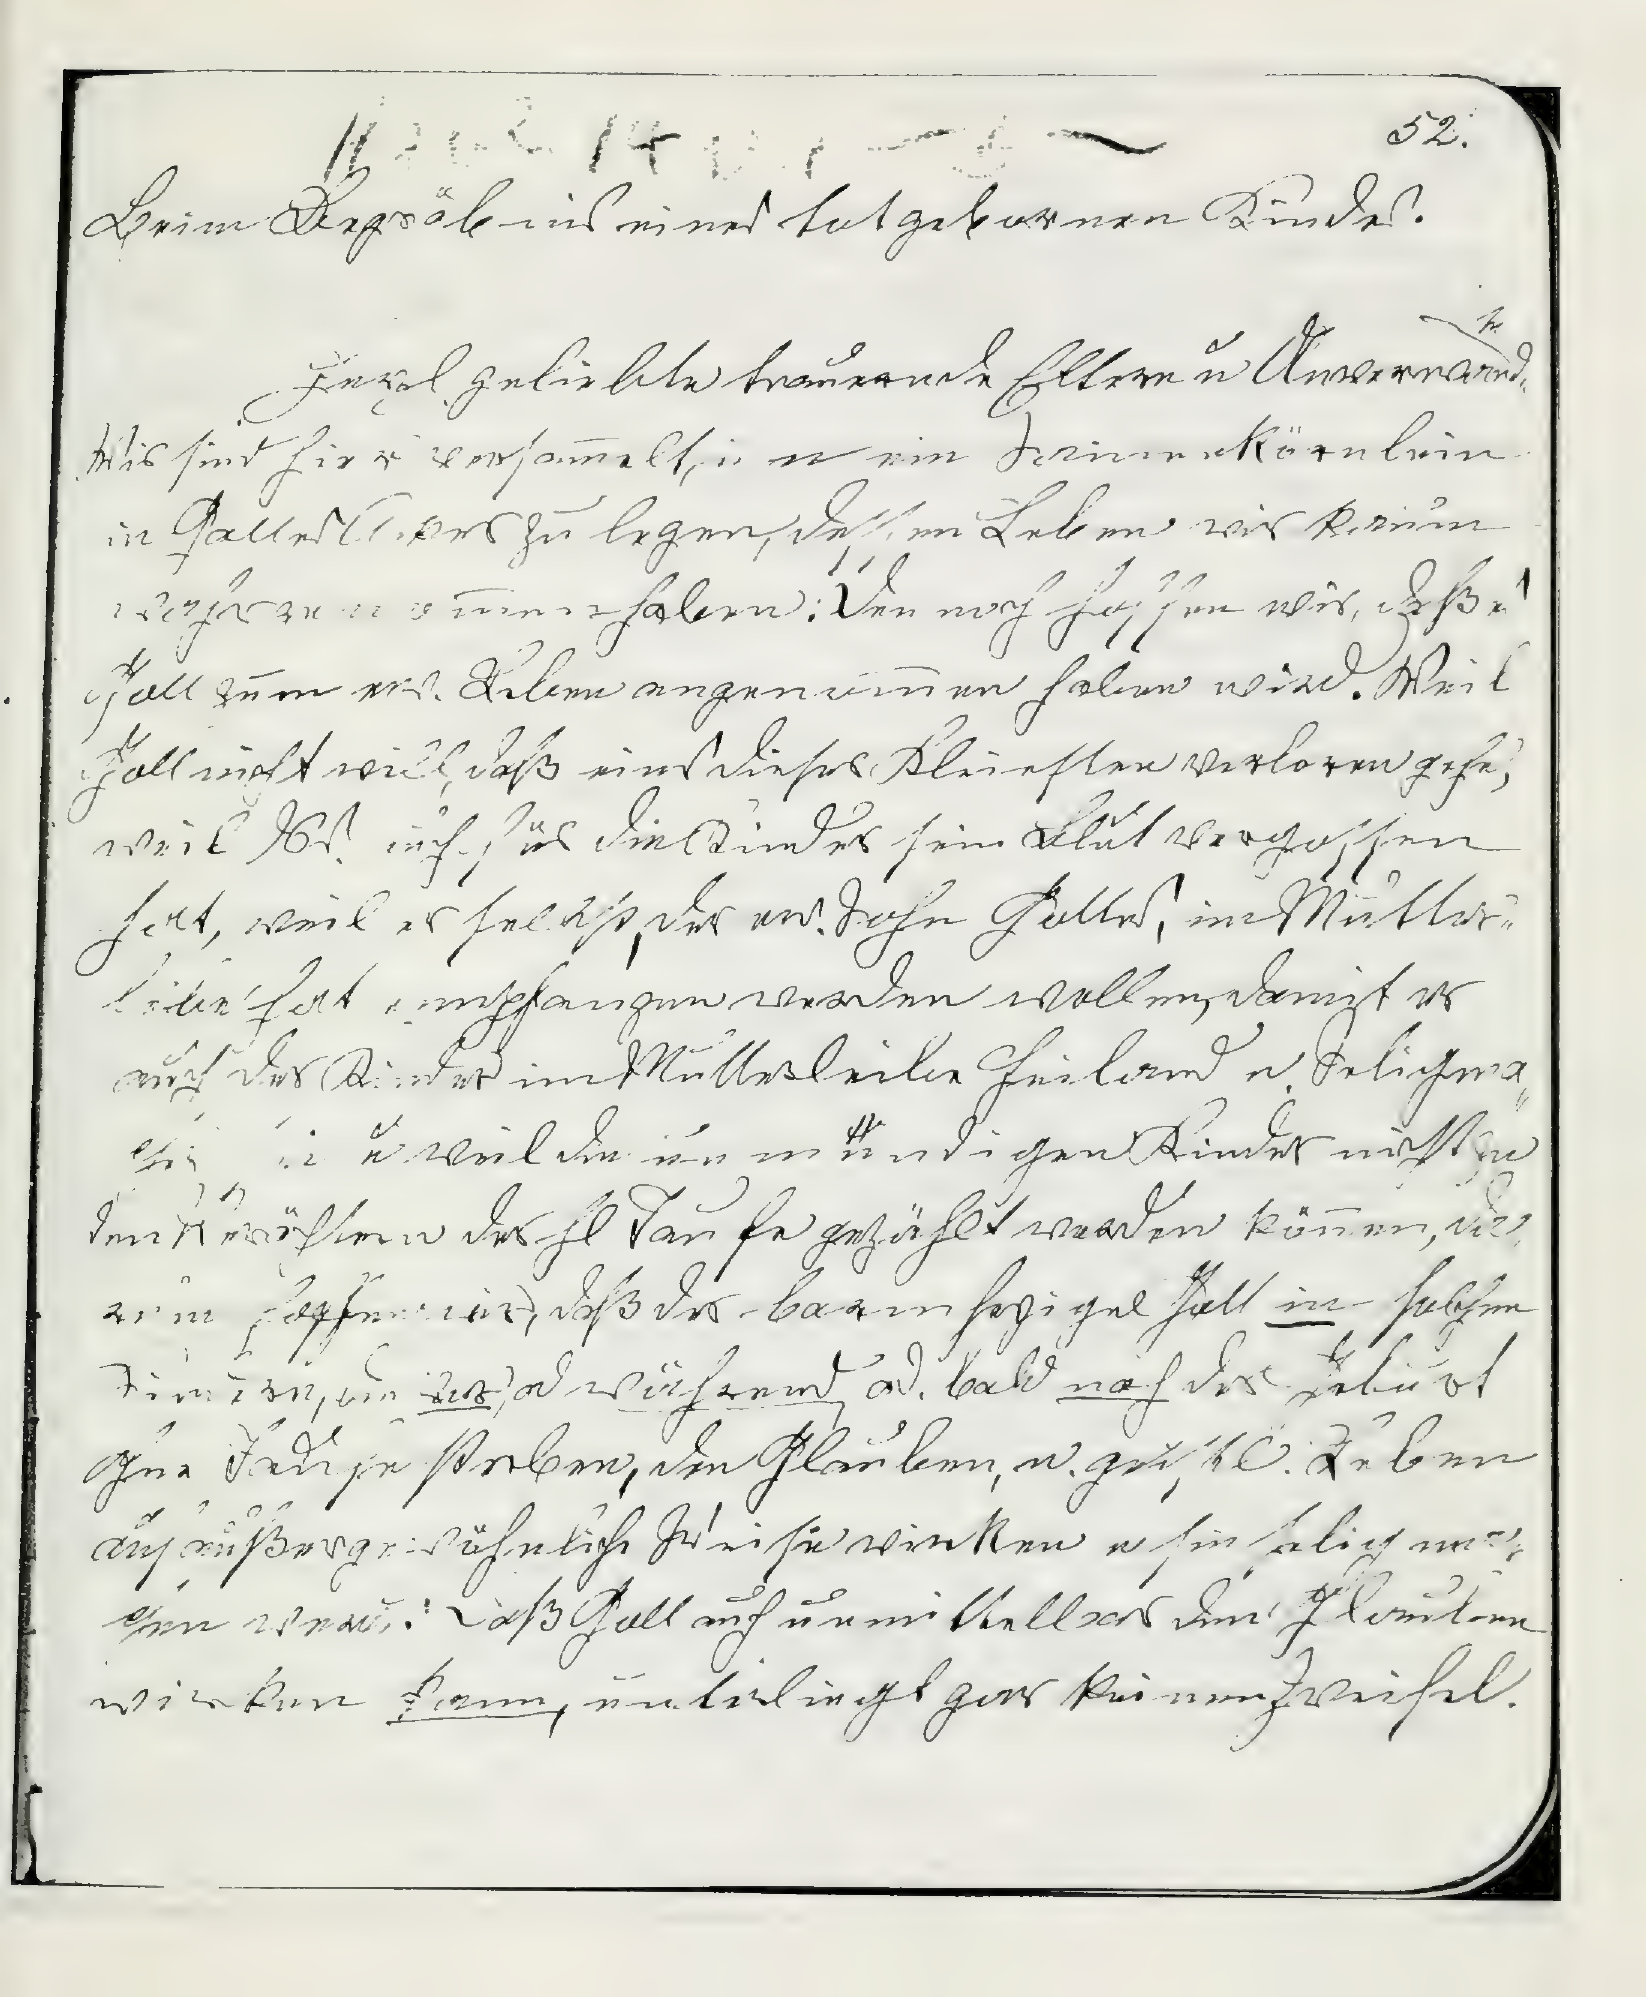 52.
Beim Begräbnis eines totgebornen Kindes.
Herzl. geliebte trauernde Eltern u Anverwand.
Wir sind hier versam̅elt, um ein Samenkörnlein
in Gottes Acker zu legen, dessen Leben wir kaum
wahrgenom̅en haben: Dennoch hoffen wir, daß es
Gott zum ew. Leben angenom̅en haben wird. Weil
Gott nicht will, daß eins dieser Kleinsten verloren gehe,
weil auch für die Kinder sein Blut vergossen
hat, weil er selbst, der ew. Sohn Gottes, im Mutter-
leibe hat empfangen werden wollen, damit er
auch der Kinder im Mutterleibe Heiland u. Seligma-
cher u weil die unmündigen Kinder nicht zu
den Verächtern der hl Taufe gezählt werden kön̅en, da-
rum hoffen wir, daß der barmherzige Gott in solchen
Kindern, die vor, od während, od. bald nach der Geburt
ohne Taufe sterben, den Glauben, u. geistl. Leben
auf außergewöhnliche Weise wirken u sie selig ma-
chen werde: Daß Gott auch unmittelbar den Glauben
wirken kann, unterliegt gar keinen Zweifel.